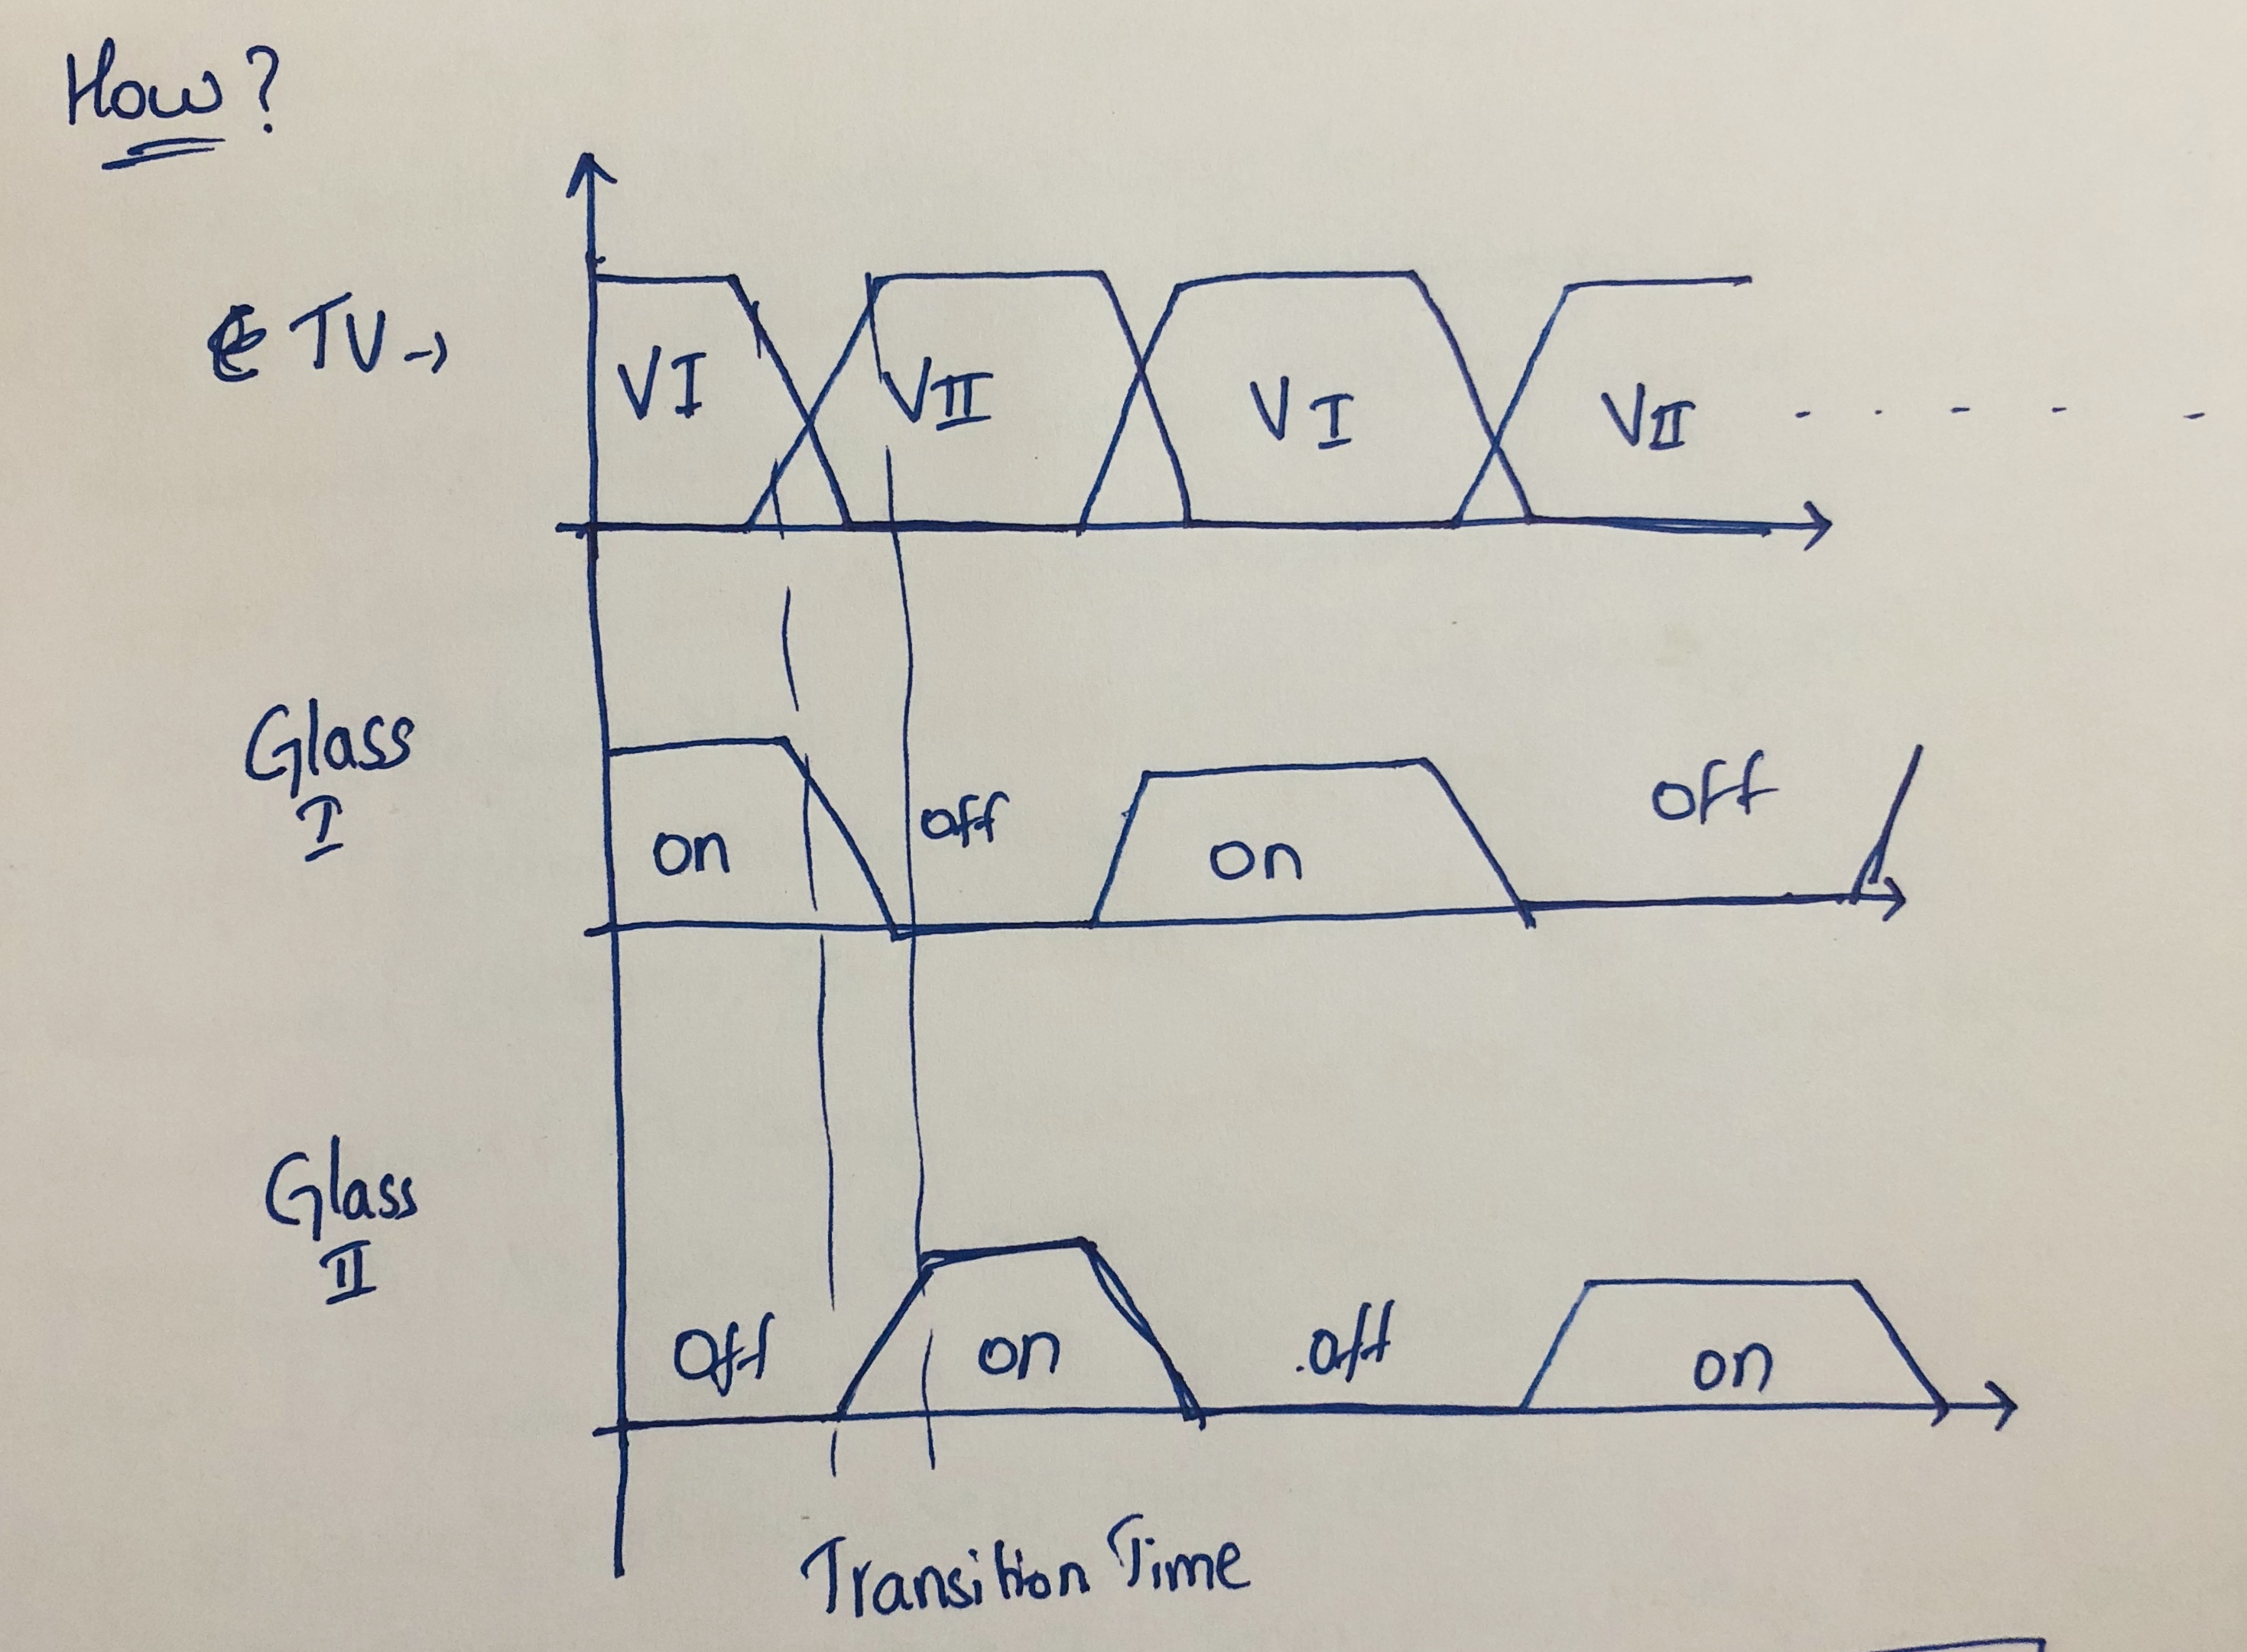 How?
TV →
VI VII VI VII - - - - - -
Glass
I
on off on off
Glass
II
off on off on
Transition Time